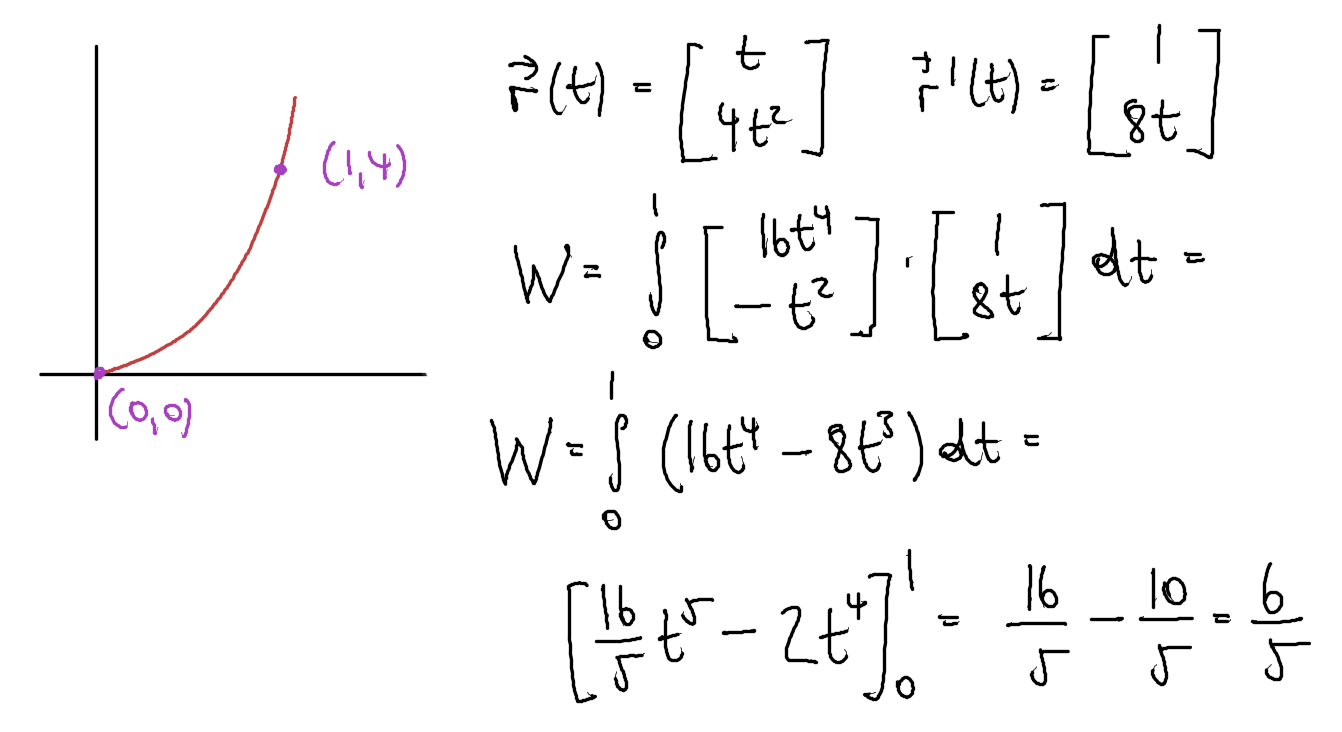 (1,4)
(0,0)
r⃗(t) = [t 4t²] r⃗'(t) = [1 8t]
W = ∫₀¹ [16t⁴ -t²] · [1 8t] dt =
W = ∫₀¹ (16t⁴ - 8t³) dt =
[16/5 t⁵ - 2t⁴]₀¹ = 16/5 - 10/5 = 6/5